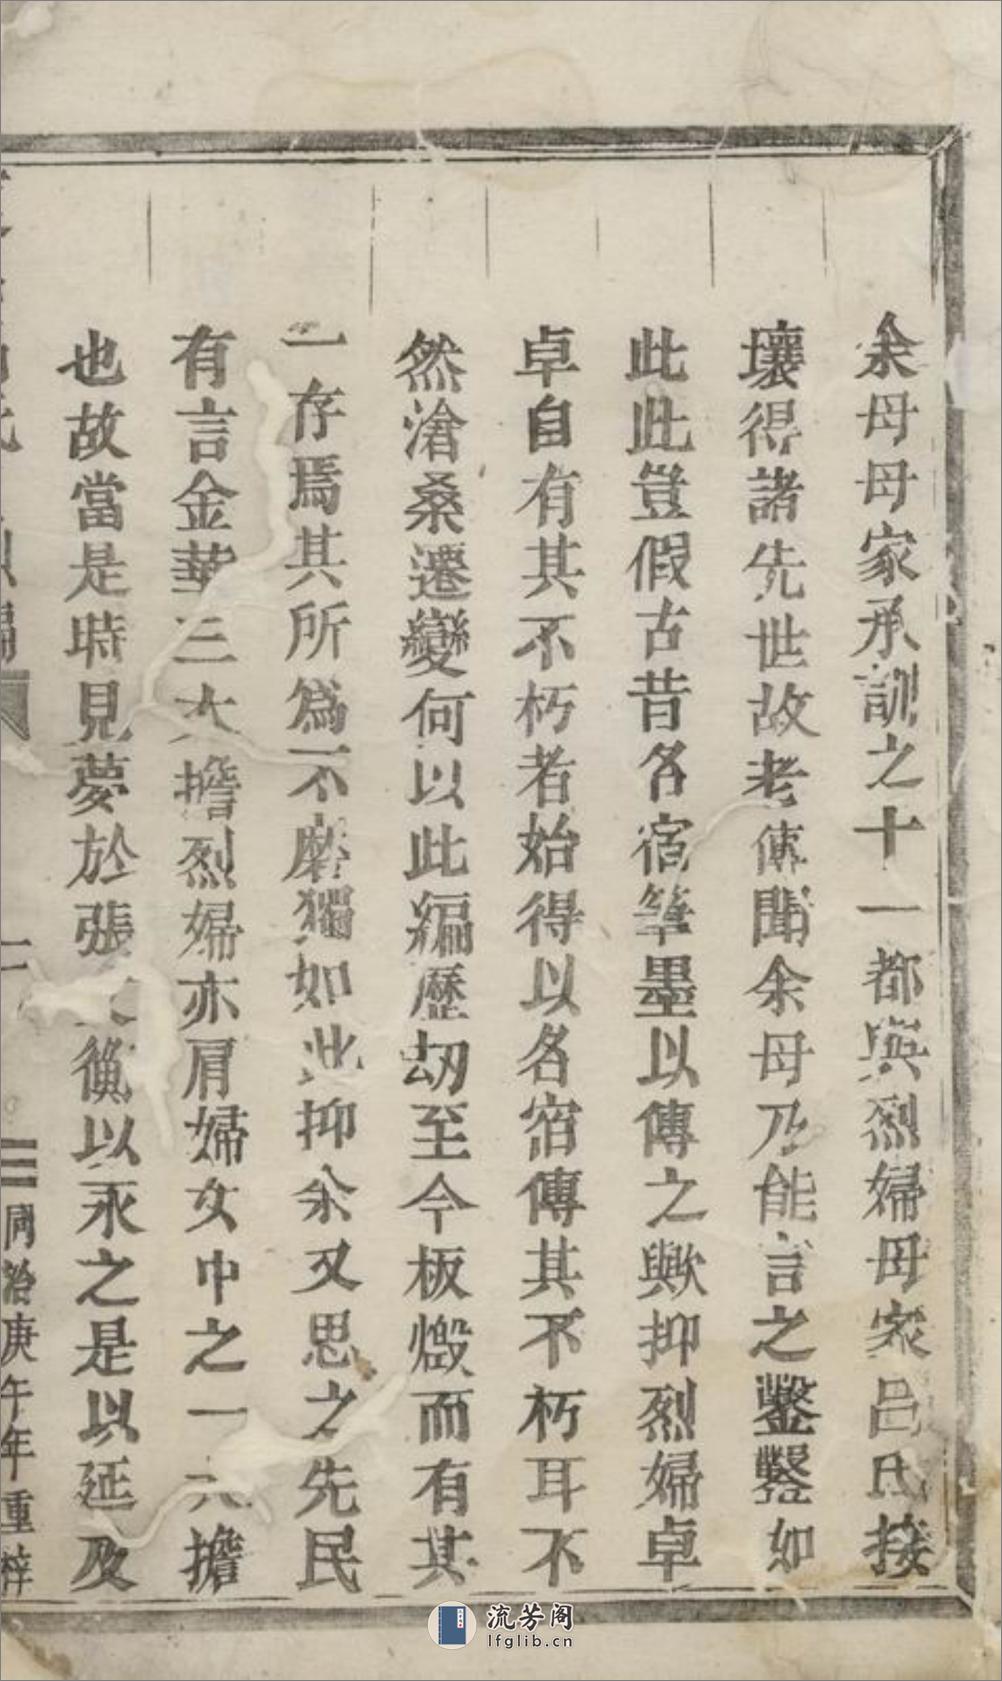 余母母家承訓之十一都與烈婦母家呂氏接
壤得諸先世故老傳聞余母乃能言之鑿鑿如
此此豈假古昔名宿筆墨以傳之歟抑烈婦卓
卓自有其不朽者始得以名宿傳其不朽耳不
然滄桑遷變何以此編歷刧至今板燬而有其
一存焉其所爲不磨獨如此抑余又思之先民
有言金華三大擔烈婦亦肩婦女中之一大擔
也故當是時見夢於張 候以永之是以延及
同治庚午年重梓
流芳阁
lfglib.cn